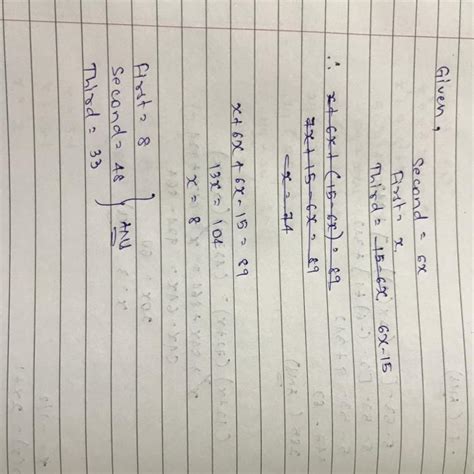 Given,
Second = 6x
First = x
Third = 15-6x, 6x-15
∴ x + 6x + (15-6x) = 89
7x + 15 - 6x = 89
-x = 74
x + 6x + 6x - 15 = 89
13x = 104
x = 8
First = 8
Second = 48 } Ans
Third = 33